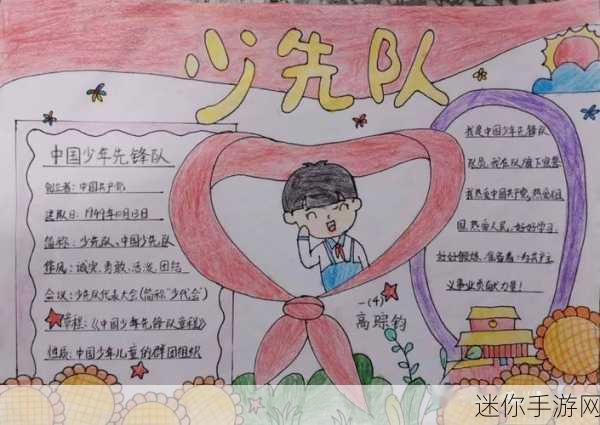 少先队
中国少年先锋队
创立者：中国共产党
建队日：1949年10月13日
简称：少先队、中国少先队
作风：诚实、勇敢、活泼、团结
会议：少先队代表大会(简称"少代会")
章程：《中国少年先锋队章程》
性质：中国少年儿童的群团组织
我是中国少年先锋队
队员，我在队旗下宣誓
我热爱中国共产党，热爱祖
国，热爱人民，好好学习，
好好锻炼，准备着：为共产主
义事业贡献力量！
一(4)
迷你手游网